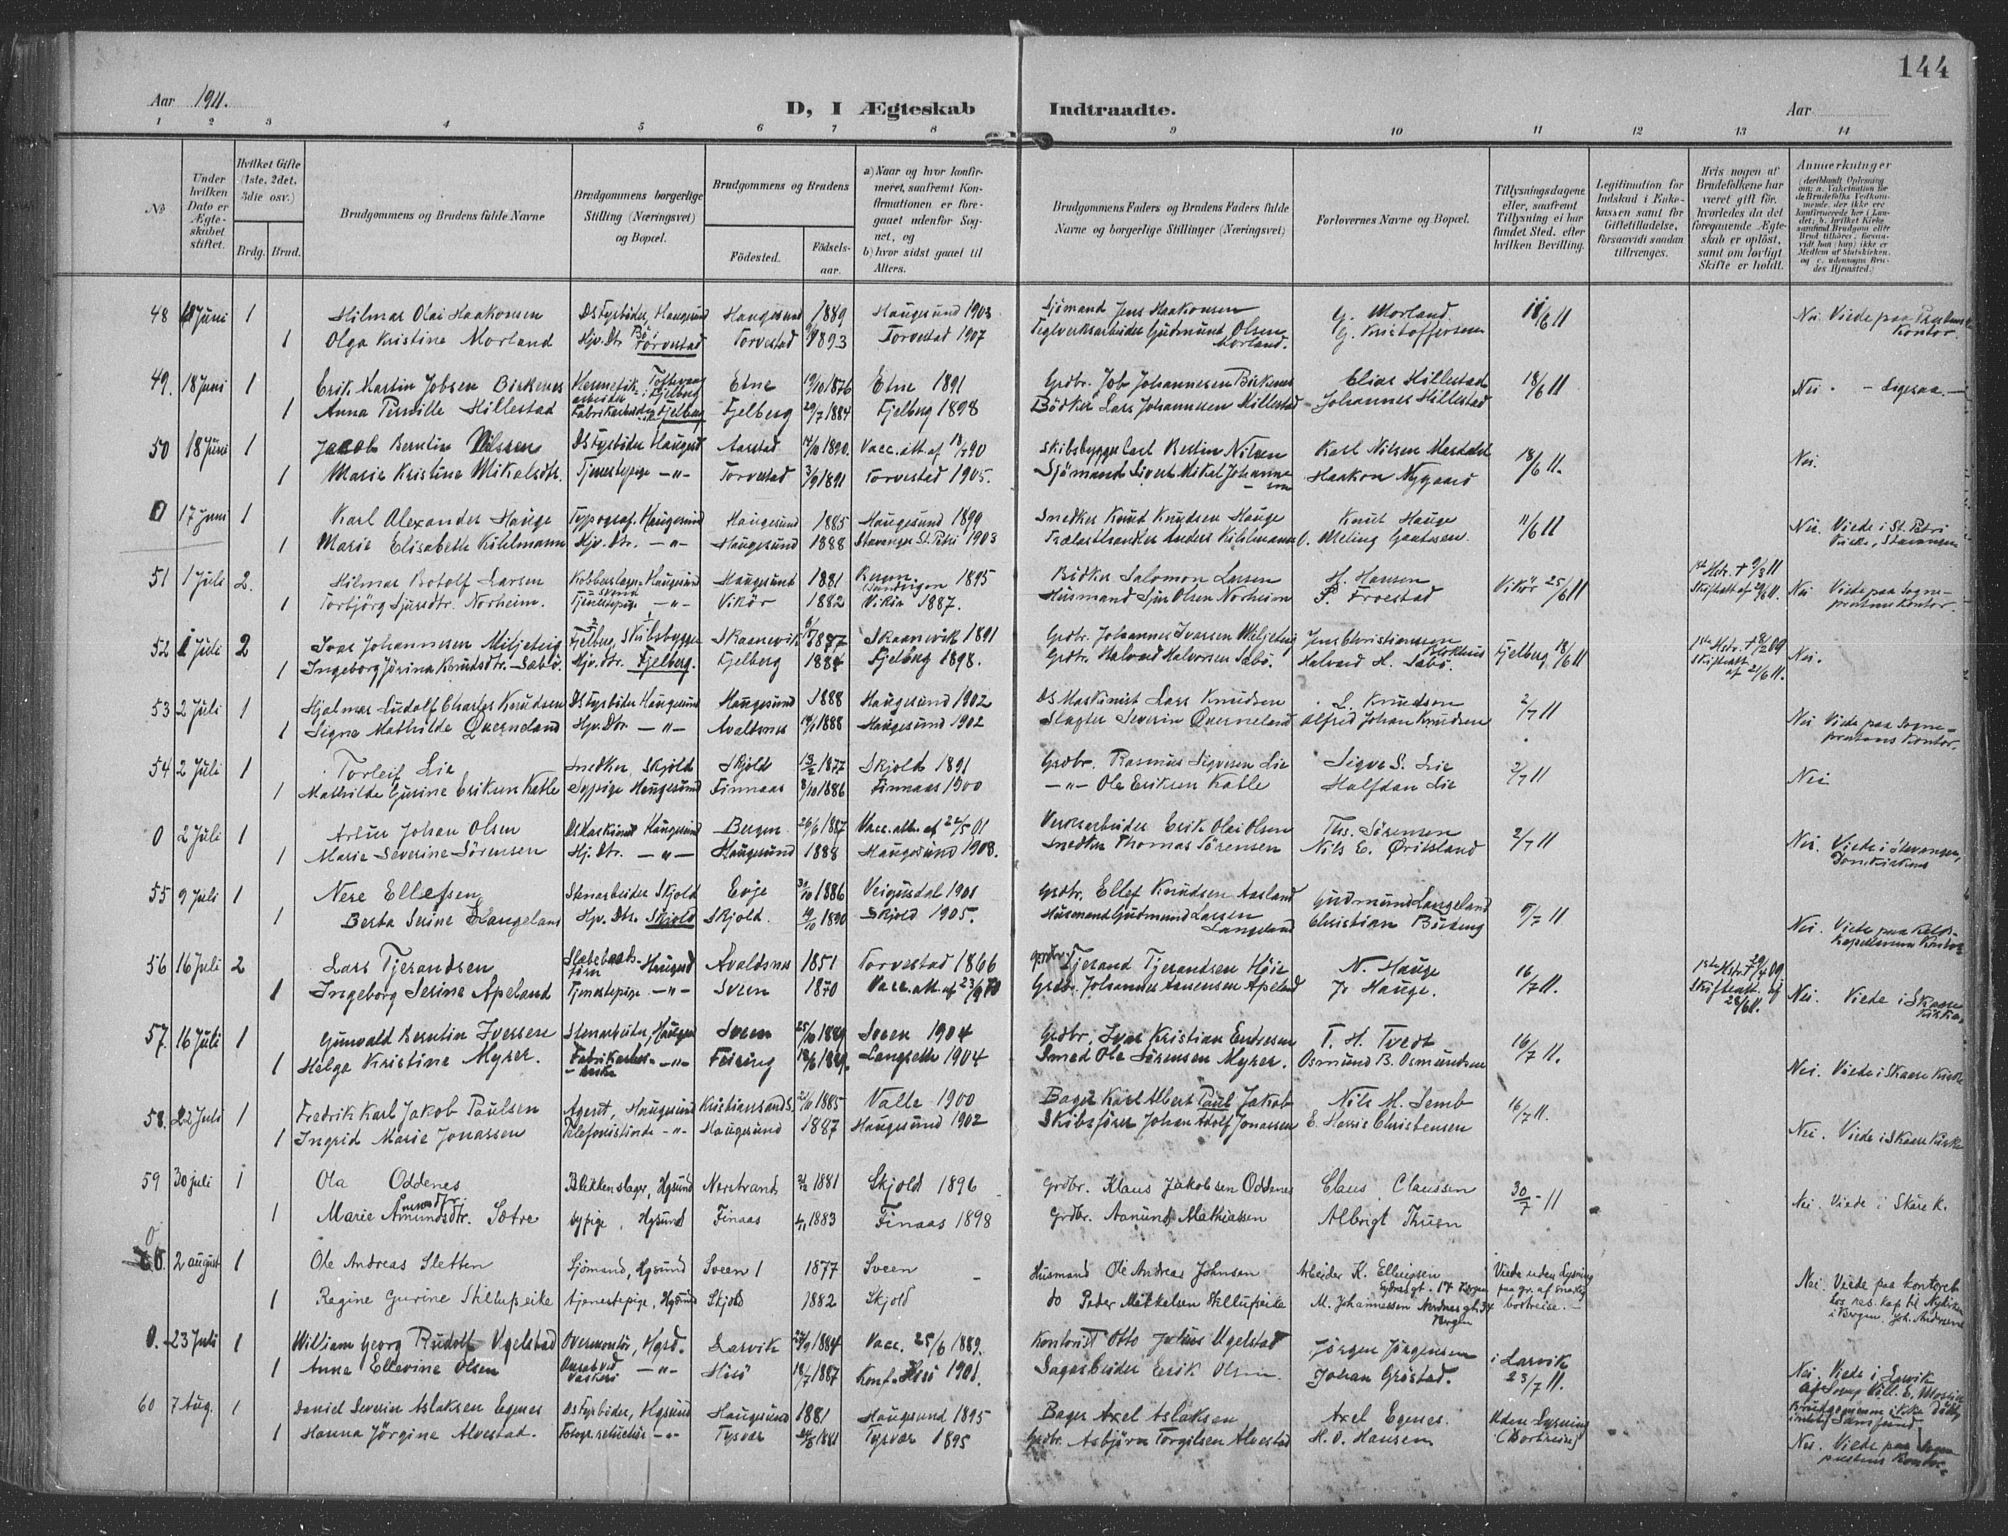 144
Aar 1911.
D, I Ægteskab Indtraadte.
Aar
1 2 3 4 5 6 7 8 9 10 11 12 13 14
No
Under hvilken Dato er Ægteskabet stiftet.
Hvilket Gifte (1ste, 2det, 3die osv.)
Brdg. Brud.
Brudgommens og Brudens fulde Navne
Brudgommens borgerlige Stilling (Næringsvei) og Bopæl.
Brudgommens og Brudens
Fødested.
Fødselsaar.
a) Naar og hvor konfirmeret, saafremt Konfirmationen er foregaaet udenfor Sognet, og
b) hvor sidst gaaet til Alters.
Brudgommens Faders og Brudens Faders fulde Navne og borgerlige Stillinger (Næringsvei)
Forlovernes Navne og Bopæl.
Tillysningsdagene eller, saafremt Tillysning ei har fundet Sted, efter hvilken Bevilling.
Legitimation for Indskud i Enkekassen samt for Giftetilladelse, forsaavidt saadan tiltrænges.
Hvis nogen af Brudefolkene har været gift før, hvorledes da det foregaaende Ægteskab er opløst, samt om lovligt Skifte er holdt.
Anmerkninger
48 18 Juni 1 Hilmar Olai Haakonsen DStyrbider Haugesund Haugesund 1889 Haugesund 1903 Sjömand Jens Haakonsen G. Morland 18/6 11 Nei Viede paa
1 Olga Kristine Morland Hjv. Dtr. Torvestad Torvestad 1893 Torvestad 1907 Teglverksarbeider Gudmund Olsen Morland. G. Kristoffersen Kontor.
49. 18 Juni 1 Erik Martin Jobsen Birkenes Hermetikarbeider Fjelberg Etne 19/10 1876 Etne 1891 Grdbr. Job Johannesen Birkenes Elias Hillestad 18/6 11 Nei. - Ligesaa. -
1 Anna Pernille Hillestad Fabrikarbeider Fjelberg Fjelberg 29/7 1884 Fjelberg 1898 Bödker Lars Johannesen Hillestad Johannes Hillestad
50 18 Juni 1 Jacob Berntin Nilssen DStyrbider Haugesd Aarstad 14/10 1890. Vacc. att. af Skibsbygger Carl Bertin Nilsen Karl Nilsen 18/6 11. Nei.
1 Marie Kristine Mikalsdtr. Tjenestepige -"- Torvestad 3/9 1891 Torvestad 1905. Sjömand Sivert Mikal Johannesen Haakon Nygaard
0 17 Juni 1 Karl Alexander Hauge Typograf. Haugesund Haugesund 1885 Haugesund 1899 Snedker Knut Knudsen Hauge Knut Hauge 11/6 11 Nei. Viede i St. Petri
1 Marie Elisabeth Kihlmann Hjv. Dtr. -"- Haugesund 1888 Stavanger St. Petri 1903 Trælasthandler Anders Kihlmann O. Meling Kirke, Stavanger
51 1 Juli 2. Hilmar Botolf Larsen Haugesund Haugesund 1881 Bergen 1895 Bödker Salomon Larsen H. Hansen Vikör 25/6 11 1ste Hstr. + 9/3 11 Nei Viede paa Sogne-
1 Torbjörg Sjursdtr. Norheim. Tjenestepige -"- Vikör 1882 Vikör 1887. Husmand Sjur Olsen Norheim P. Froestad Skifteatt af prestens Kontor.
52 1 Juli 2 Ivar Johannesen Miljeteig Fjelberg, Skibsbygger Skaanevik 1887 Skaanevik 1891 Grdbr. Johannes Ivarsen Miljeteig Jens Christiansen Fjelberg 18/6 11 1ste Hstr. + 8/2 09 Nei.
1 Ingeborg Jörina Knudsdtr. Sæbö. Hjv. dtr. Fjelberg. Fjelberg 1884 Fjelberg 1898. Grdbr. Halvard Halvorsen Sæbö. Halvard H. Sæbö. Skifteatt af 21/6 11.
53 2 Juli 1 Hjalmar Ludolf Charles Knudsen DStyrbider Haugesund Haugesund 1888 Haugesund 1902 DS Maskinist Lars Knudsen L. Knudsen 2/7 11 Nei Viede paa Sogne-
1 Signe Mathilde Qverneland Hjv. Dtr -"- Avaldsnes 1888 Haugesund 1902 Slagter Severin Qverneland Alfred Johan Knudsen prestens Kontor.
54 2 Juli 1 Torleif Lie Snedker Skjold Skjold 1877 Skjold 1891 Grdbr. Rasmus Sigvisen Lie Sigve S. Lie 2/7 11 Nei
1 Mathilde Gurine Eriksen Katle Sypige Haugesund Finnaas 8/10 1886 Finnaas 1900 -"- Ole Eriksen Katle Halfdan Lie
0 2 Juli 1 Artur Johan Olsen DSMaskinist Haugesund Bergen 26/6 1887 Vacc. att. af 22/5 01 Verksarbeider Erik Olai Olsen Ths. Sörensen 2/7 11 Nei. Viede i Stavanger,
1 Marie Severine Sörensen Hj. Dtr. -"- Haugesund 1888 Haugesund 1903. Snedker Thomas Sörensen Nils E. Domkirken
55 9 Juli 1 Nere Ellefsen Stenarbeider Skjold Evje 1886 Veigusdal 1901 Grdbr. Ellef Knudsen Aasland Gudmund Langeland 9/7 11
1 Berta Serine Langeland Hjv. Dtr. Skjold Skjold. 19/10 1890 Skjold 1905. Husmand Gudmund Larsen Langeland Christian Nei. Viede paa Resd. Kapellanens Kontor
56 16 Juli 2 Lars Tjerandsen Haugesd Avaldsnes 1851 Torvestad 1866 Grdbr. Tjerand Tjerandsen Höie N. Hauge 16/7 11. 1ste Hstr. + 29/4 09
1 Ingeborg Serine Apeland Tjenestepige -"- Sveen 1870 Vacc. att. af Grdbr. Johannes Aanensen Apeland Jo Hauge. Skifteatt. af 28/6 11. Nei. Viede i Skaare Kirke
57. 16 Juli 1 Gunvald Berntin Iversen Stenarbeider, Haugesd Sveen 25/10 1889 Sveen 1904 Grdbr. Ivar Kristian Endresen T. H. Tvedt 16/7 11.
1 Helga Kristine Myrer. Fabrikarbeiderske -"- Feiring 1889. Langseth 1904 Smed Ole Sörensen Myrer. Osmund B. Osmundsen Nei. Viede i Skaare Kirke
58. 22 Juli 1 Fredrik Karl Jakob Paulsen Agent, Haugesund Kristiansand S. 1885 Valle 1900 Bager Karl Albert Paul Jakob Nils M. Semb 16/7 11.
1 Ingrid Marie Jonassen Telefonistinde -"- Haugesund 1887 Haugesund 1902 Skibsförer Johan Adolf Jonassen E. Christensen Nei. Viede i Skaare Kirke
59 30 juli 1 Ola Oddenes Blikkenslager, Hgsund Nerstrand 1881 Skjold 1896 Grdbr. Klaus Jakobsen Oddenes Claus Claussen 30/7 - 11 Nei. Viede i Skåre K.
1 Marie Amundsdtr. Sætre sypige, Hgsund Finaas 1883 Finaas 1898 Grdbr. Aamund Mathiassen Albrigt Thuen
0 2 august 1 Ole Andreas Sletten Sjömand, Hgsund Sveen 1877 Sveen Husmand Ole Andreas Johnsen Arbeider K. Ellingsen Viede uden Lysning Nei. Viede paa kontoret
1 Regine Gurine Stillufseike tjenestepige, Hgsund Skjold 1882 Skjold do Peder Mikkelsen Stillufseike M. Johannessen Nordnesgt. 34 Bergen paa gr. af snarlig bortreise. - hos res. kap. til i Bergen. Joh.
0. 23 Juli 1 William Georg Rudolf Ugelstad Overmontör, Hgsd. Larvik 1884 Vacc. 25/6 1889. Kontorist Otto Julius Ugelstad Jörgen Jörgensen i Larvik 23/7 11. Nei. Viede i Larvik
1 Anne Ellevine Olsen -"- Hisö 18/7 1887 Konf. Hisö 1901. Sagarbeider Erik Olsen Johan Gröstad.
60 7 Aug. 1 Daniel Severin Aslaksen Egenes DStyrbider, Hgsund Haugesund 1881 Haugesund 1895 Bager Axel Aslaksen Axel Egenes. Uden Lysning
1 Hanna Jörgine Alvestad. Fotogr. retuchör -"- Tysvær 1881 Tysvær 1895 Grdbr. Asbjörn Torgilsen Alvestad H. O. Hansen (Bortreise) Nei. Viede paa Sogneprestens Kontor.